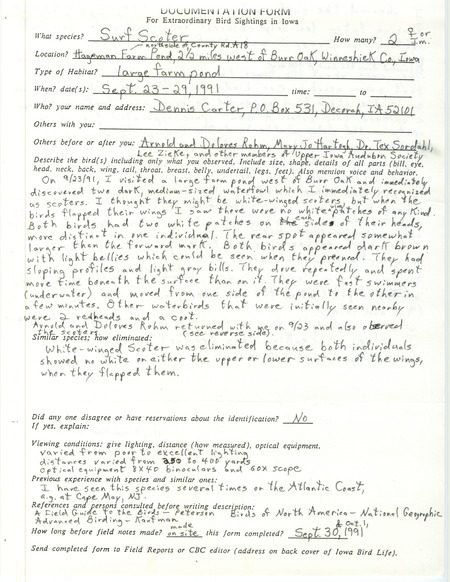 DOCUMENTATION FORM
For Extraordinary Bird Sightings in Iowa
What species? Surf Scoter How many? 2 ♀ or Im.
northside of County Rd. A18
Location? Hageman Farm Pond, 2 1/2 miles west of Burr Oak, Winneshiek Co., Iowa
Type of Habitat? large farm pond
When? date(s): Sept. 23-29, 1991 time: to
Who? your name and address: Dennis Carter, P.O. Box 531, Decorah, IA 52101
Others with you:
Others before or after you: Arnold and Doloves Rohm, Mary Jo Hartogh, Dr. Tex Sordahl,
Lee Zieke, and other members of Upper Iowa Audubon Society
Describe the bird(s) including only what you observed. Include size, shape, details of all parts (bill, eye,
head, neck, back, wing, tail, throat, breast, belly, undertail, legs, feet). Also mention voice and behavior.
On 9/23/91, I visited a large farm pond west of Burr Oak and immediately
discovered two dark, medium-sized waterfowl which I immediately recognized
as scoters. I thought they might be white-winged scoters, but when the
birds flapped their wings I saw there were no white patches of any kind.
Both birds had two white patches on the sides of their heads,
more distinct in one individual. The rear spot appeared somewhat
larger than the forward mark. Both birds appeared dark brown
with light bellies which could be seen when they preened. They had
sloping profiles and light gray bills. They dove repeatedly and spent
more time beneath the surface than on it. They were fast swimmers
(underwater) and moved from one side of the pond to the other in
a few minutes. Other waterbirds that were initially seen nearby
were 2 redheads and a coot.
Arnold and Doloves Rohm returned with me on 9/23 and also observed
the scoters. (see reverse side).
Similar species; how eliminated:
White-winged Scoter was eliminated because both individuals
showed no white on either the upper or lower surfaces of the wings,
when they flapped them.
Did any one disagree or have reservations about the identification? No
If yes, explain:
Viewing conditions: give lighting, distance (how measured), optical equipment.
varied from poor to excellent lighting
distances varied from 350 to 400 yards
Optical equipment 8x40 binoculars and 60x scope
Previous experience with species and similar ones:
I have seen this species several times on the Atlantic Coast,
e.g. at Cape May, NJ.
References and persons consulted before writing description:
A Field Guide to the Birds - Peterson Birds of North America - National Geographic
Advanced Birding - Kaufman
How long before field notes made? made on site this form completed? Sept. 30, & Oct. 1, 1991
Send completed form to Field Reports or CBC editor (address on back cover of Iowa Bird Life).